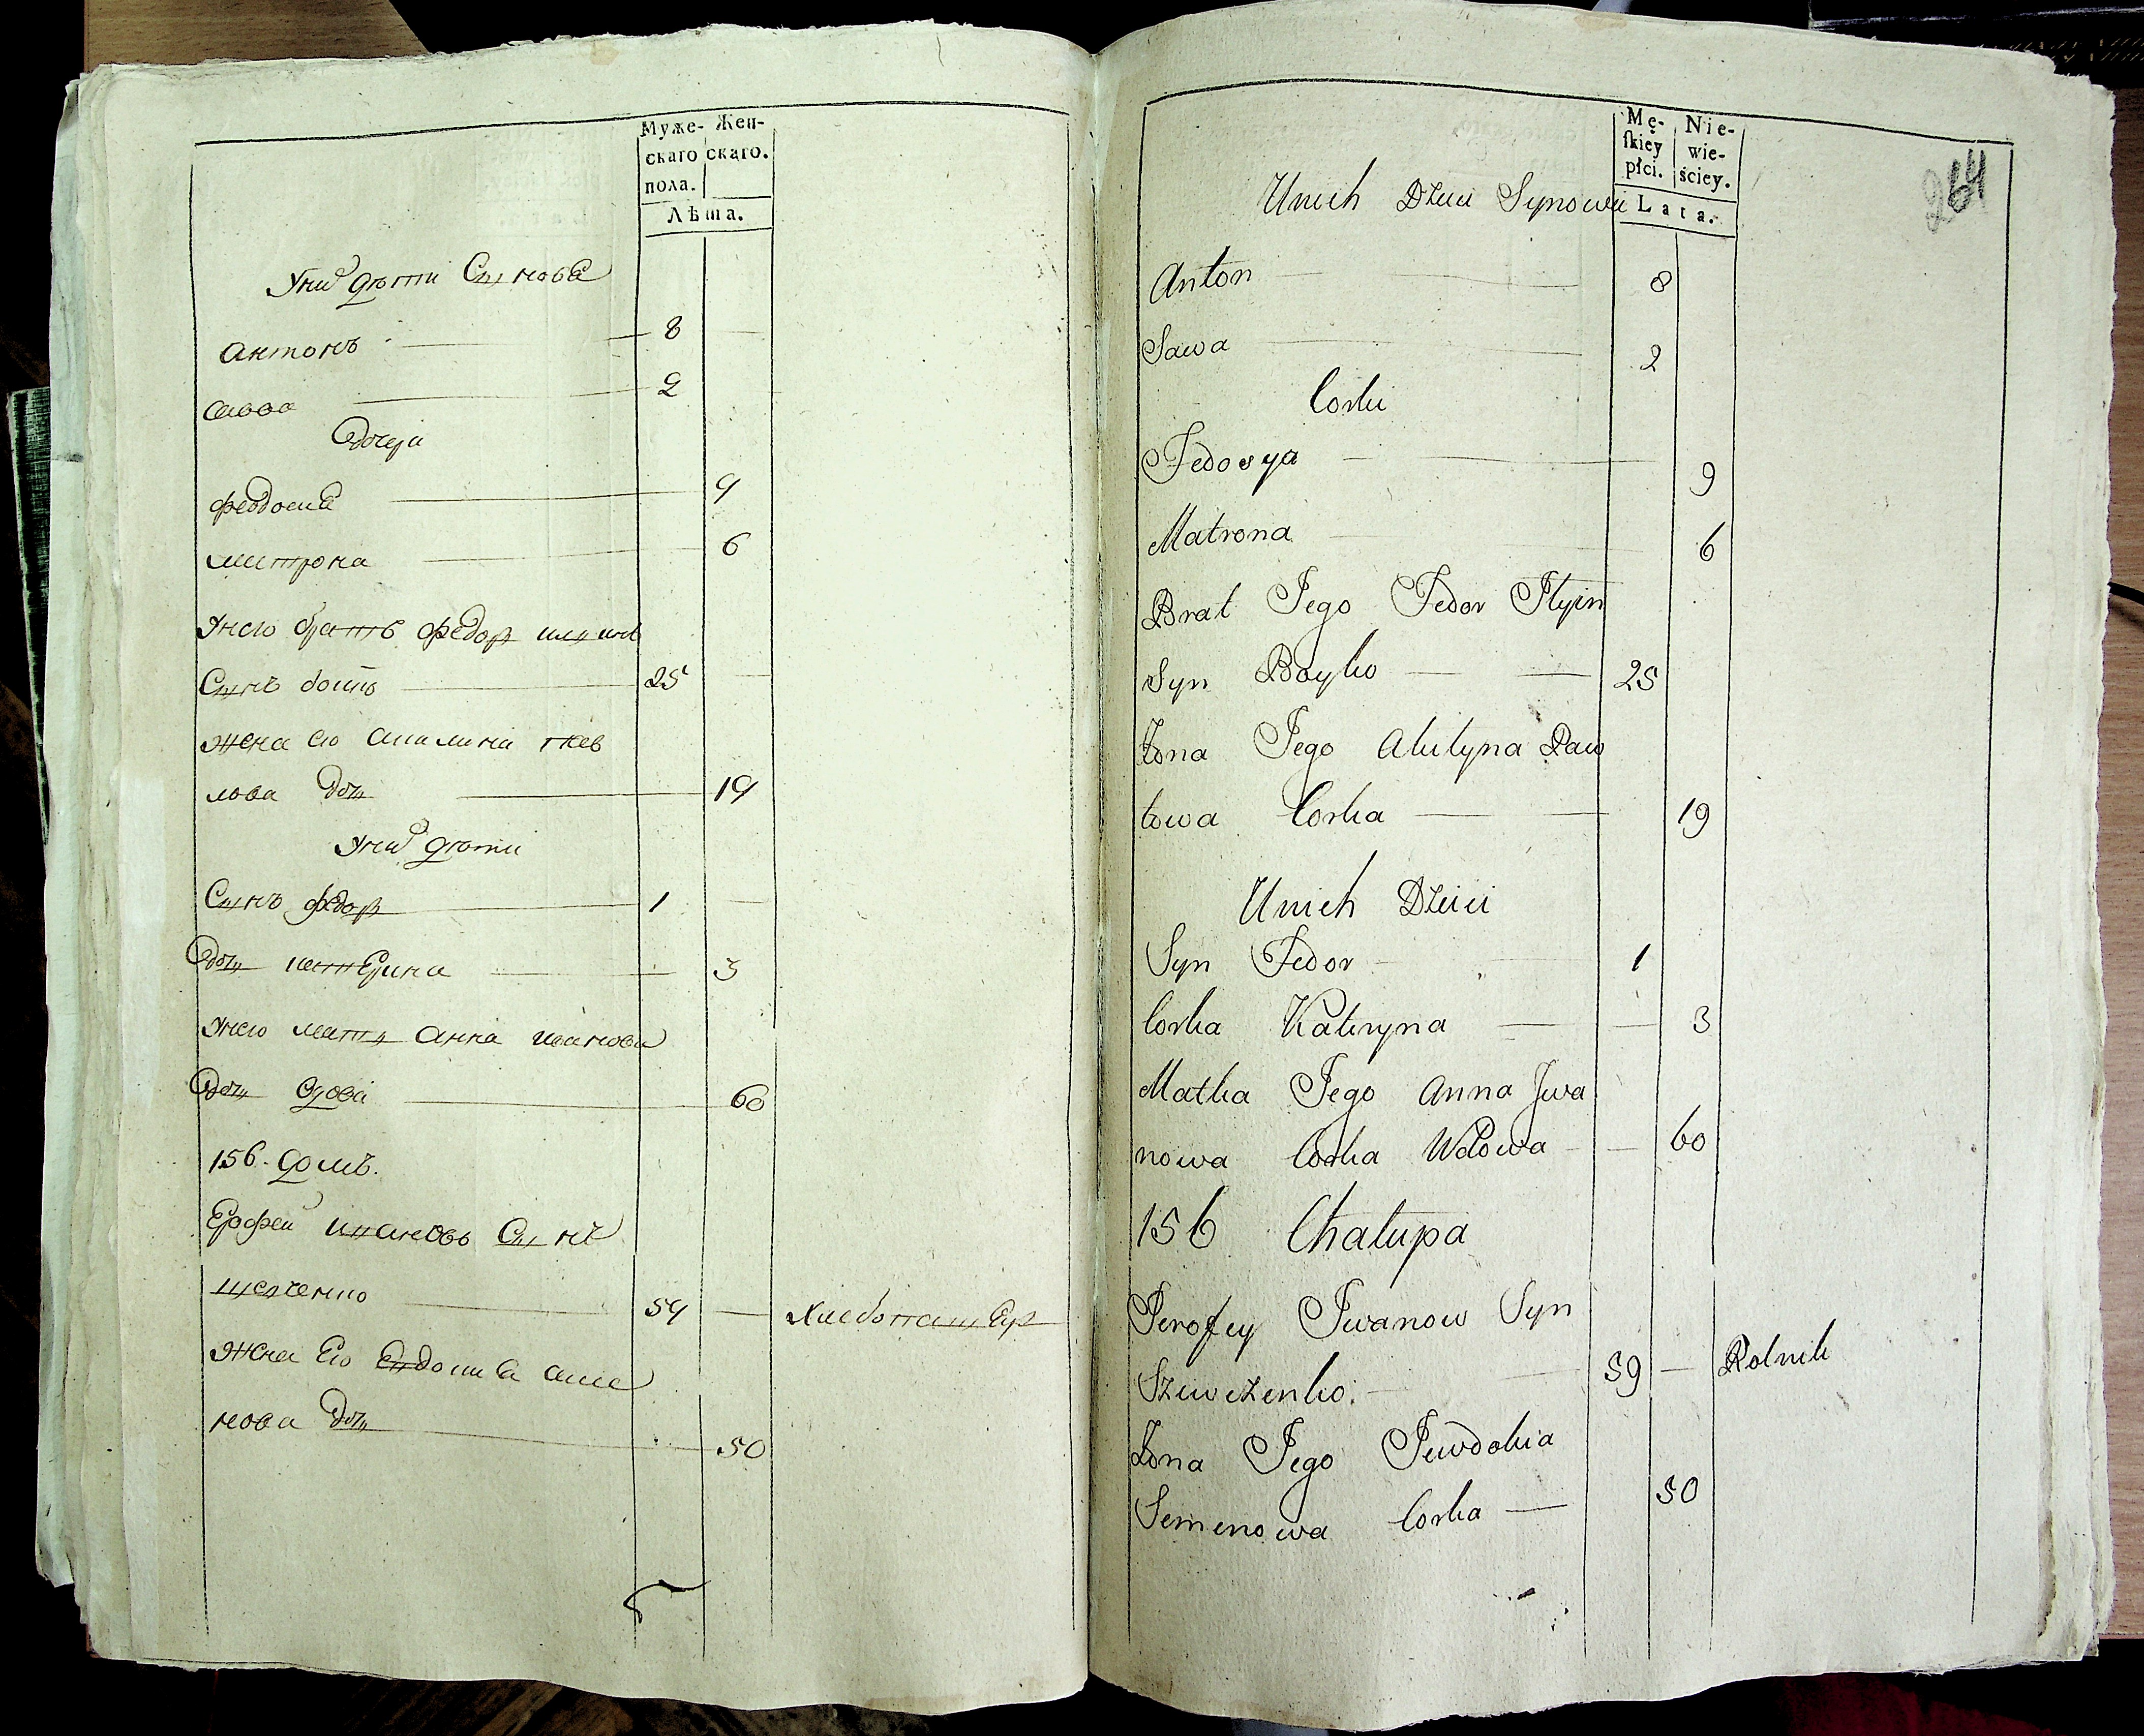 Муже- Жен-
скаго скаго.
пола.
Лѣта.
У них дѣти Сыновя
Антонъ 8
Савва 2
Дочери
Феодосия 9
Митрона 6
У него братъ Федор
Сынъ 25
Жена его Акилина Пав
лова дочь 19
У них дѣти
Сынъ Федор 1
Дочь Катерина 3
У него мать Анна Иванова
Дочь вдова 60
156. домъ.
Ерофей Ивановъ Сынъ
Шевченко 59 — Хлебопашец
Жена Его Евдокия Семе
нова дочь 50
Mę- Nie-
skiey wie-
płci. ściey.
Lata.
264
Unich Dzieci Synowie
Anton 8
Sawa 2
Corki
Fedosya 9
Matrona 6
Brat Jego Fedor Ilyin
Syn Boyko 25
Żona Jego Akilyna Paw
łowa Corka 19
Unich Dzieci
Syn Fedor 1
Corka Kateryna 3
Matka Jego Anna Jwa
nowa Corka Wdowa 60
156 Chałupa
Jerofey Jwanow Syn
Szewczenko. 59 — Rolnik
Żona Jego Jewdokia
Semenowa Corka 50